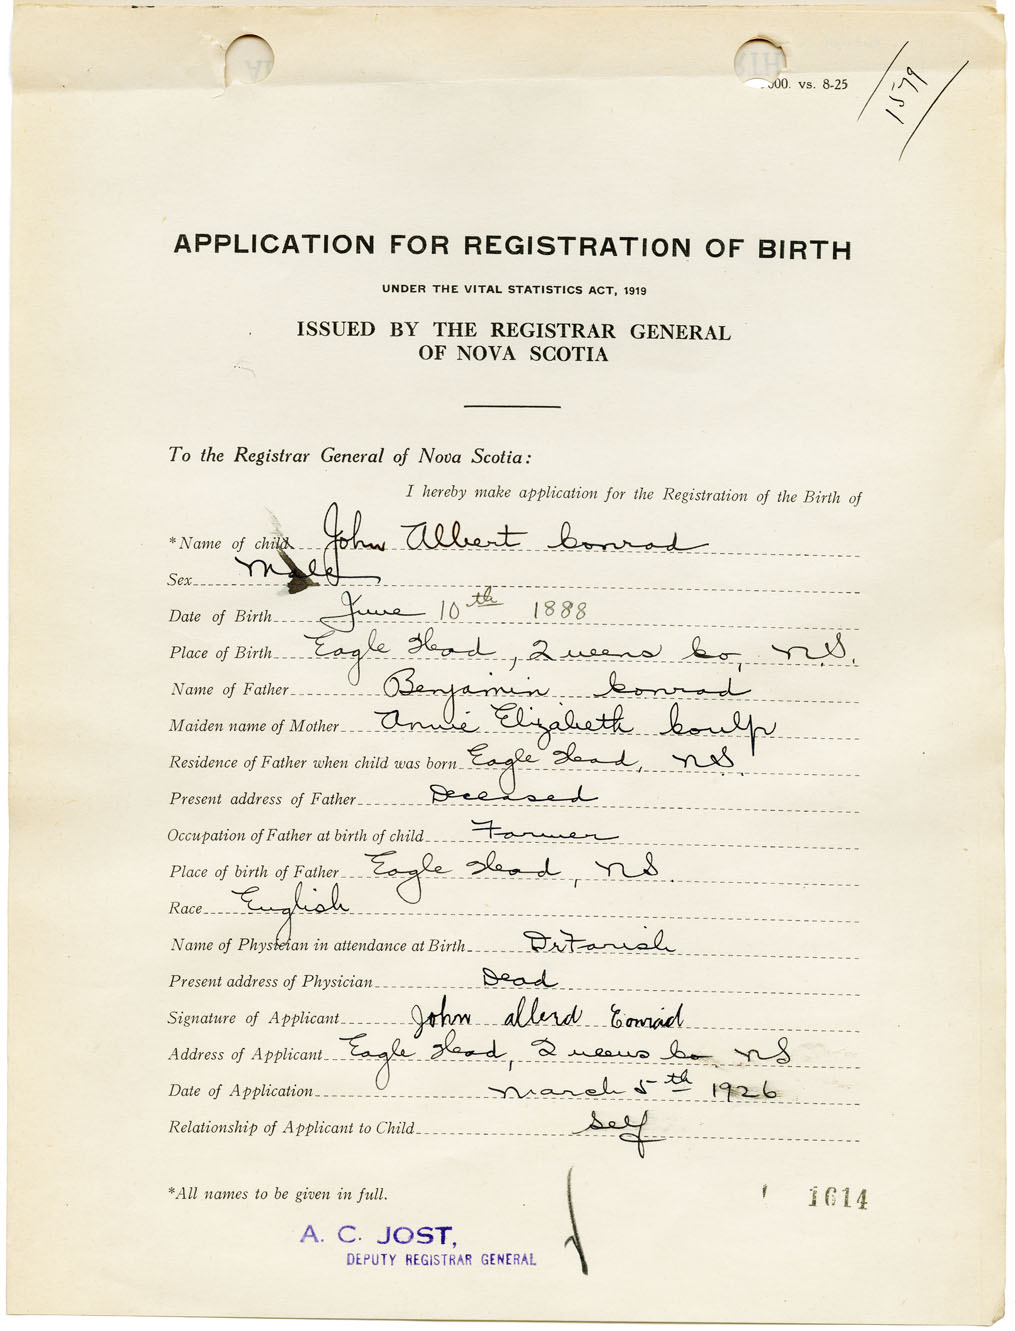 000. vs. 8-25
1579
APPLICATION FOR REGISTRATION OF BIRTH
UNDER THE VITAL STATISTICS ACT, 1919
ISSUED BY THE REGISTRAR GENERAL
OF NOVA SCOTIA
To the Registrar General of Nova Scotia:
I hereby make application for the Registration of the Birth of
*Name of child John Albert Conrad
Sex Male
Date of Birth June 10th 1888
Place of Birth Eagle Head, Queens Co, N.S.
Name of Father Benjamin Conrad
Maiden name of Mother Annie Elizabeth Coulp
Residence of Father when child was born Eagle Head, N.S.
Present address of Father Deceased
Occupation of Father at birth of child Farmer
Place of birth of Father Eagle Head, N.S.
Race English
Name of Physician in attendance at Birth Dr Farish
Present address of Physician Dead
Signature of Applicant John allerd Conrad
Address of Applicant Eagle Head, Queens Co NS
Date of Application March 5th 1926
Relationship of Applicant to Child Self
*All names to be given in full.
1614
A. C. JOST,
DEPUTY REGISTRAR GENERAL